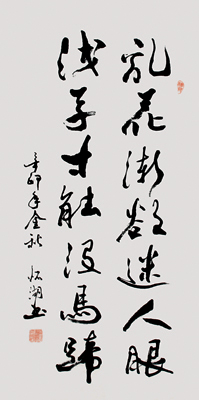 乱花渐欲迷人眼
浅草才能没馬蹄
辛卯年金秋